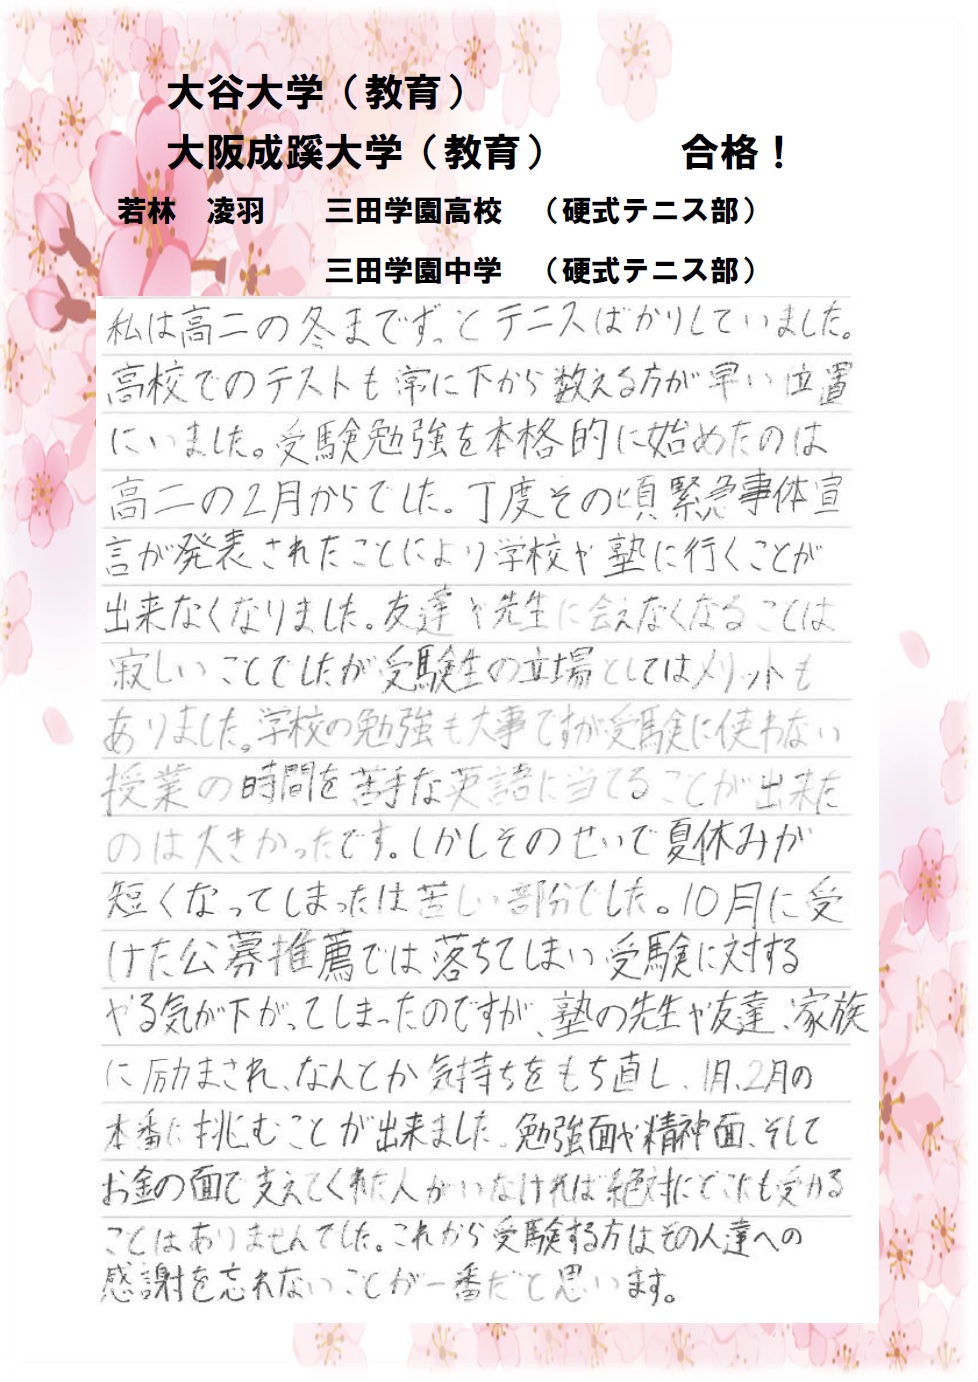 大谷大学（教育）
大阪成蹊大学（教育）　　　合格！
若林　凌羽　　三田学園高校　（硬式テニス部）
三田学園中学　（硬式テニス部）
私は高二の冬までずっとテニスばかりしていました。
高校でのテストも常に下から数える方が早い位置
にいました。受験勉強を本格的に始めたのは
高二の2月からでした。丁度その頃緊急事体宣
言が発表されたことにより学校や塾に行くことが
出来なくなりました。友達や先生に会えなくなることは
寂しいことでしたが受験生の立場としてはメリットも
ありました。学校の勉強も大事ですが受験に使わない
授業の時間を苦手な英語に当てることが出来た
のは大きかったです。しかしそのせいで夏休みが
短くなってしまったは苦しい部分でした。10月に受
けた公募推薦では落ちてしまい受験に対する
やる気が下がってしまったのですが、塾の先生や友達、家族
に励まされ、なんとか気持ちをもち直し、1月、2月の
本番に挑むことが出来ました。勉強面や精神面、そして
お金の面で支えてくれた人がいなければ絶対にどこにも受かる
ことはありませんでした。これから受験する方はその人達への
感謝を忘れないことが一番だと思います。